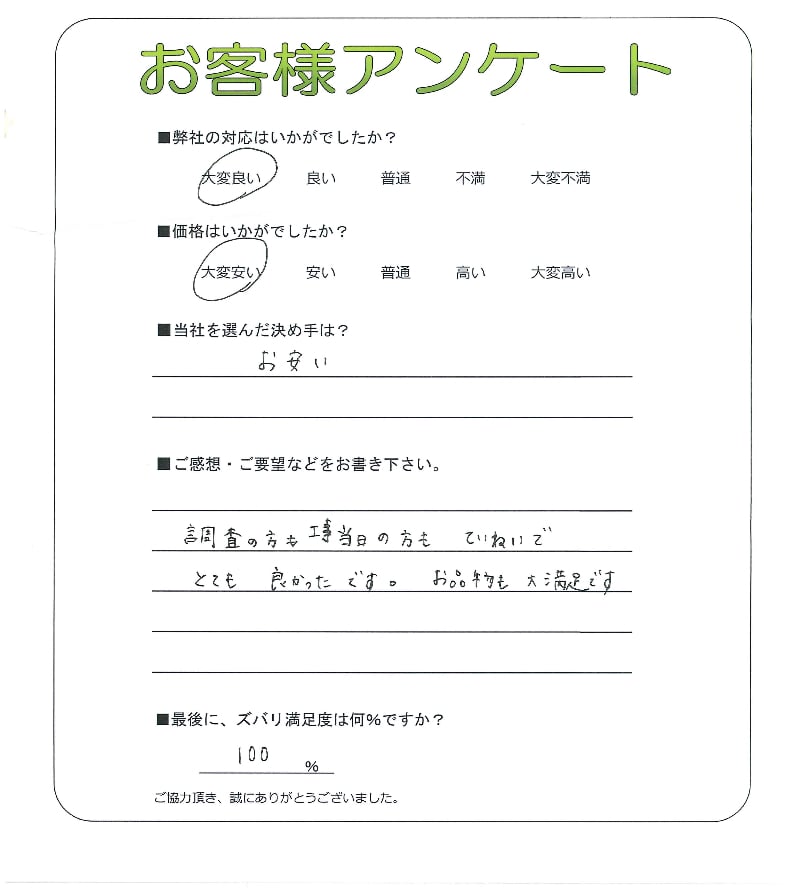 お客様アンケート
■弊社の対応はいかがでしたか？
大変良い 良い 普通 不満 大変不満
■価格はいかがでしたか？
大変安い 安い 普通 高い 大変高い
■当社を選んだ決め手は？
お安い
■ご感想・ご要望などをお書き下さい。
調査の方も工事当日の方も ていねいで
とても 良かったです。 お品物も 大満足です
■最後に、ズバリ満足度は何%ですか？
100 %
ご協力頂き、誠にありがとうございました。